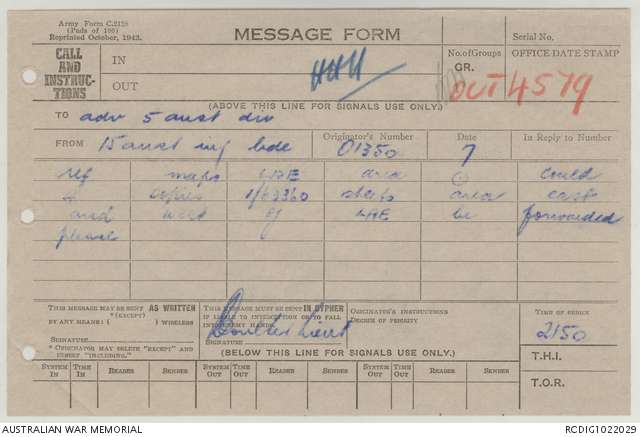 Army Form C.2128
(Pads of 100)
Reprinted October, 1942.
MESSAGE FORM
Serial No.
CALL AND INSTRUCTIONS
IN
OUT
No. of Groups
GR.
OFFICE DATE STAMP
OUT 4579
(ABOVE THIS LINE FOR SIGNALS USE ONLY.)
TO adv 5 aust div
FROM 15 aust inf bde
Originator's Number
O1350
Date
7
In Reply to Number
ref maps LAE area (.) could
4 copies 1/63360 sheets area east
and west of LAE be forwarded
please
THIS MESSAGE MAY BE SENT AS WRITTEN
*(EXCEPT)
BY ANY MEANS: ( ) WIRELESS
SIGNATURE
* ORIGINATOR MAY DELETE "EXCEPT" AND INSERT "INCLUDING."
THIS MESSAGE MUST BE SENT IN CYPHER
IF LIABLE TO INTERCEPTION OR TO FALL
INTO ENEMY HANDS.
SIGNATURE
Lieut
ORIGINATOR'S INSTRUCTIONS
DEGREE OF PRIORITY
TIME OF ORIGIN
2150
T.H.I.
T.O.R.
(BELOW THIS LINE FOR SIGNALS USE ONLY.)
SYSTEM IN TIME IN READER SENDER SYSTEM OUT TIME OUT READER SENDER SYSTEM OUT TIME OUT READER SENDER
AUSTRALIAN WAR MEMORIAL
RCDIG1022029